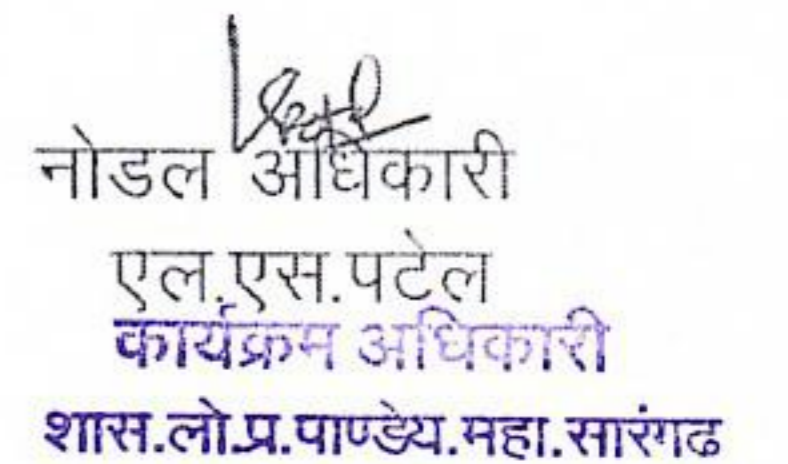 नोडल अधिकारी
एल.एस.पटेल
कार्यक्रम अधिकारी
शास.लो.प्र.पाण्डेय.महा.सारंगढ